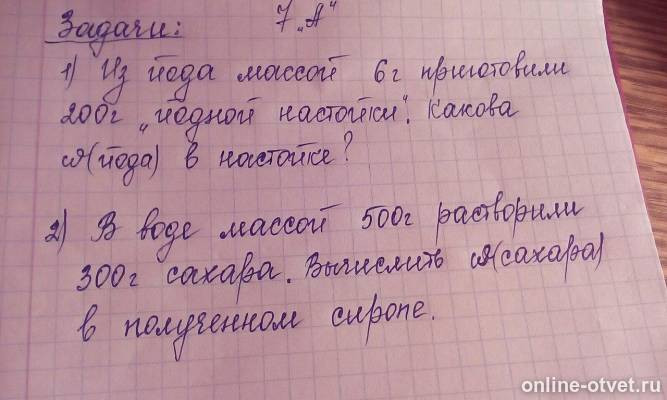 Задачи: 7 „А"
1) Из йода массой 6г приготовили
200г „йодной настойки". Какова
ω(йода) в настойке?
2) В воде массой 500г растворили
300г сахара. Вычислить ω(сахара)
в полученном сиропе.
online-otvet.ru